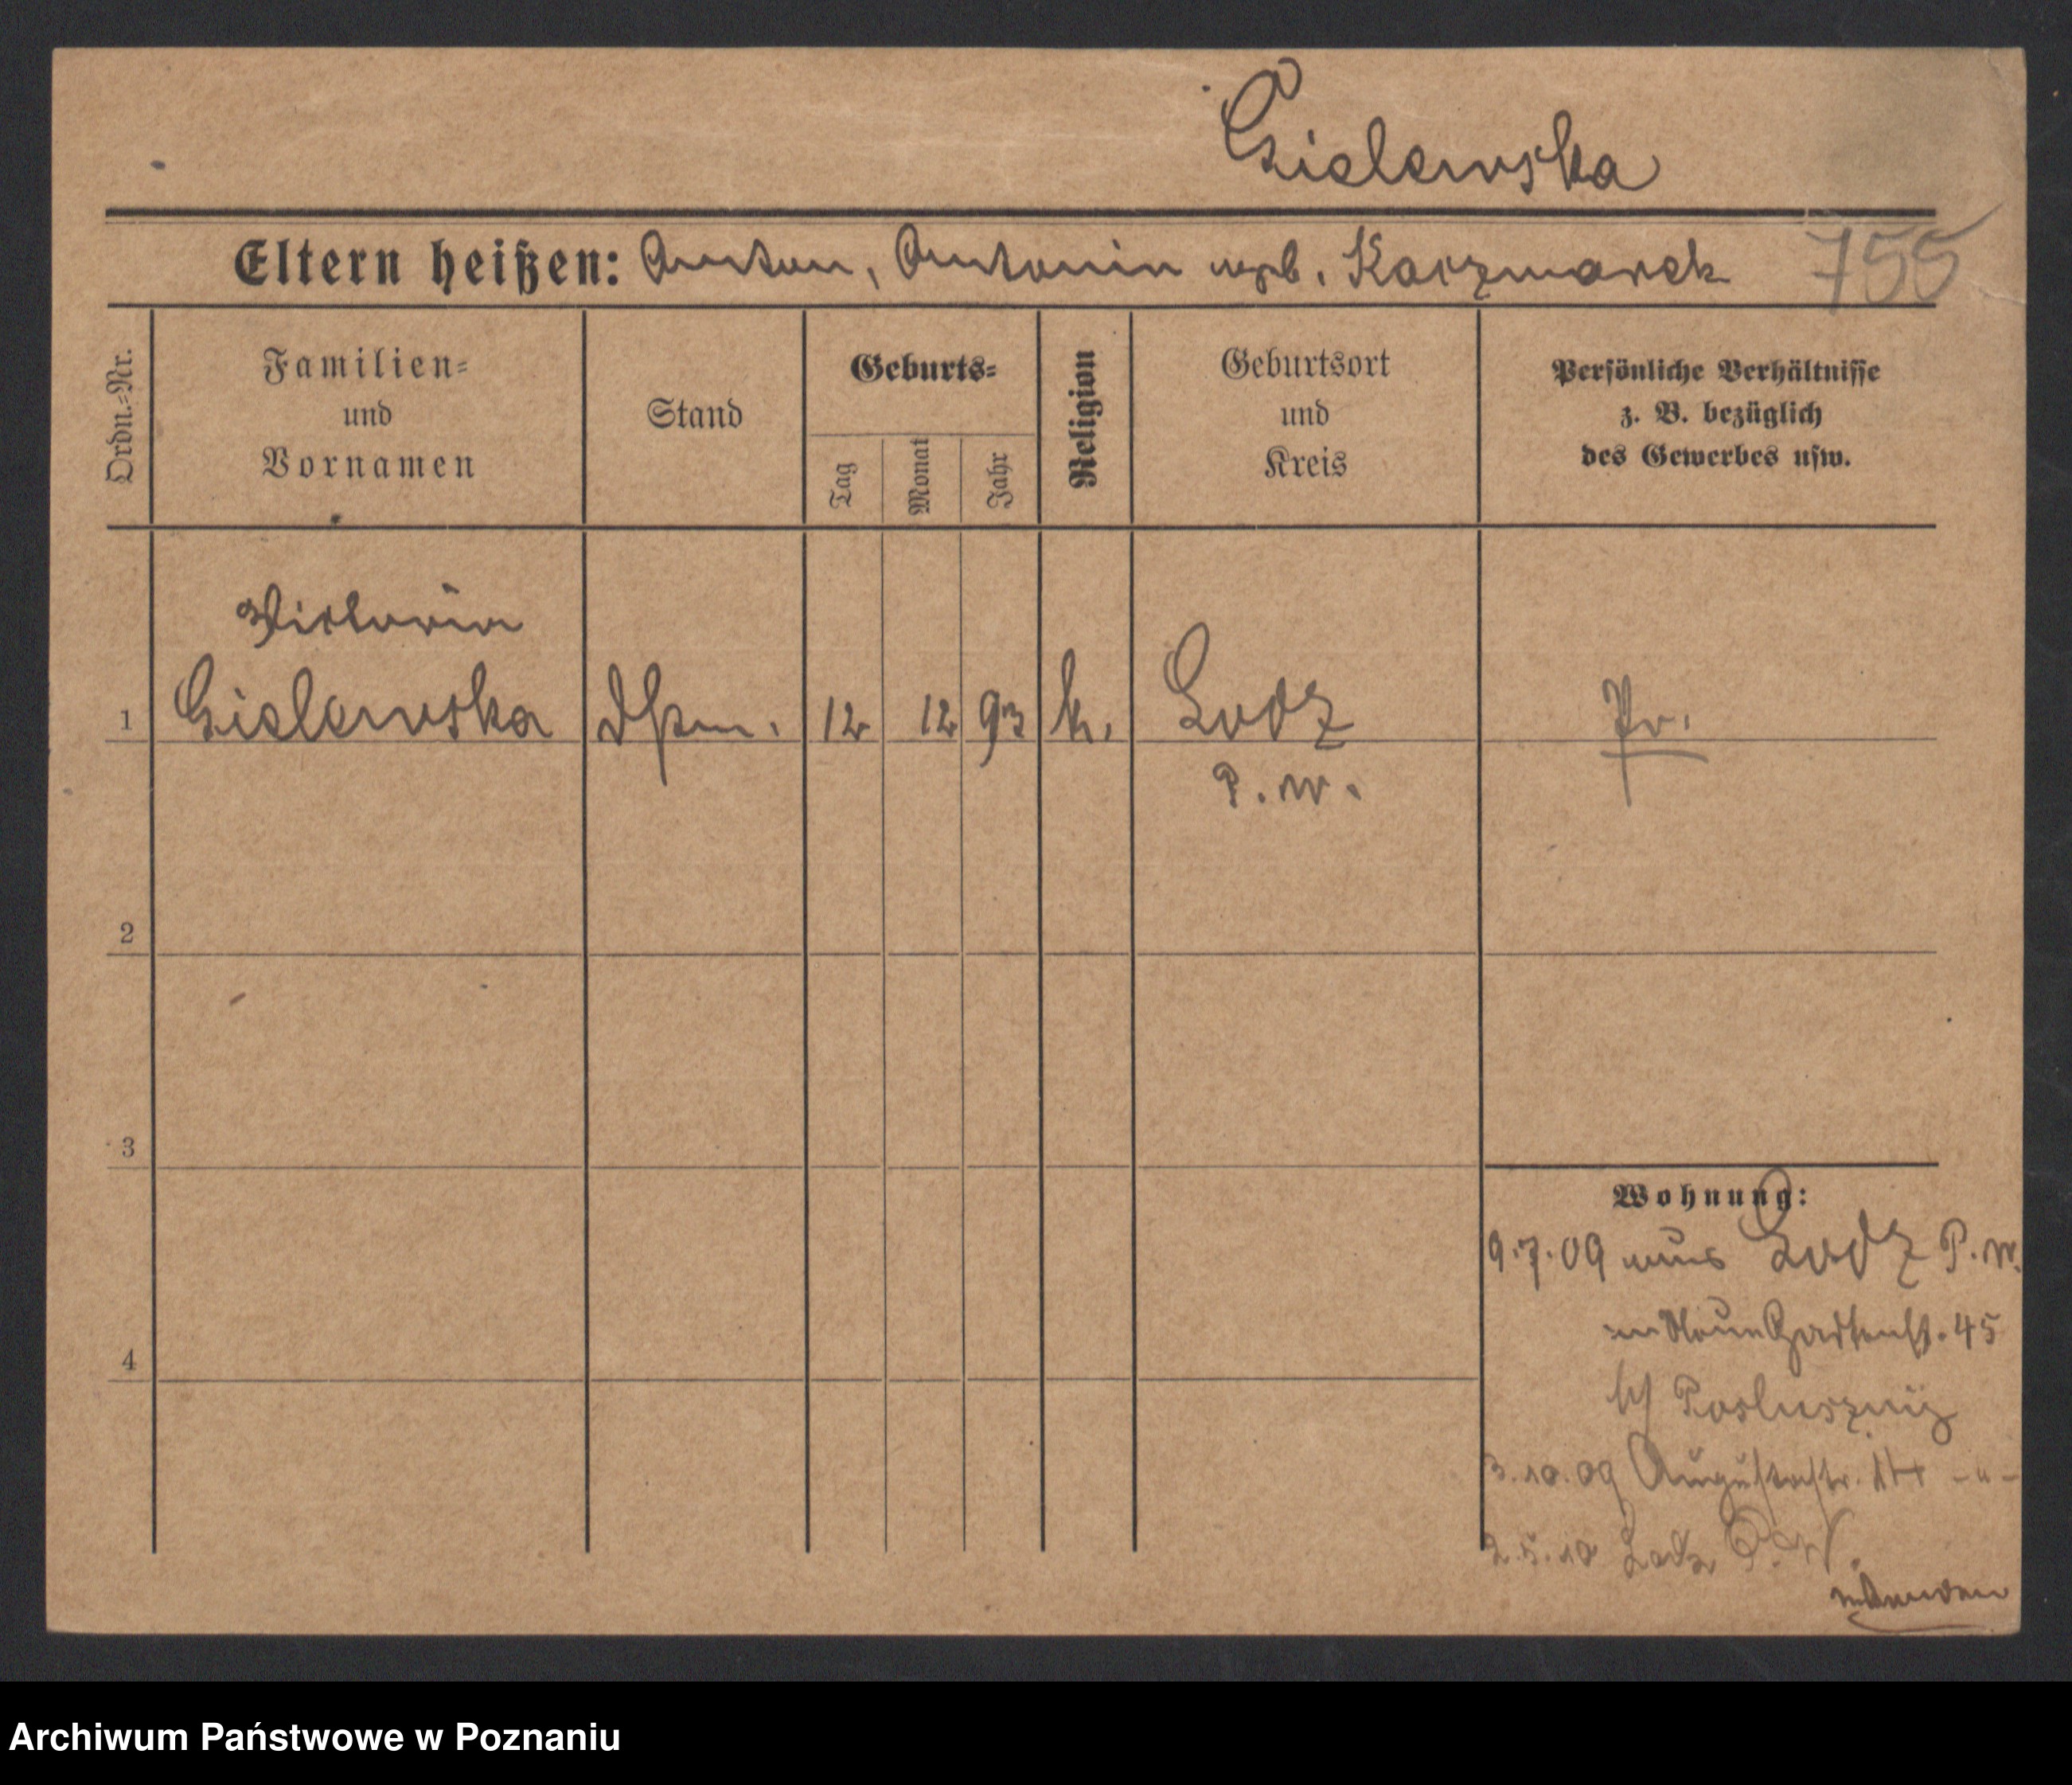 Cielewska
Eltern heißen: Anton, Antonin geb. Kaczmarek 755
Ordn.=Nr.
Familien=
und
Vornamen
Stand
Geburts=
Tag
Monat
Jahr
Religion
Geburtsort
und
Kreis
Persönliche Verhältnisse
z. B. bezüglich
des Gewerbes usw.
Victoria
1 Cielewska 12 12 93 k. Lodz Pr.
P. W.
2
3
4
Wohnung:
9.7.09 aus Lodz P. W.
Neue Gartenst. 45
b/ Posluszny
3.10.09 Augustastr. -"-
2.5.10 Lodz P. W.
Archiwum Państwowe w Poznaniu